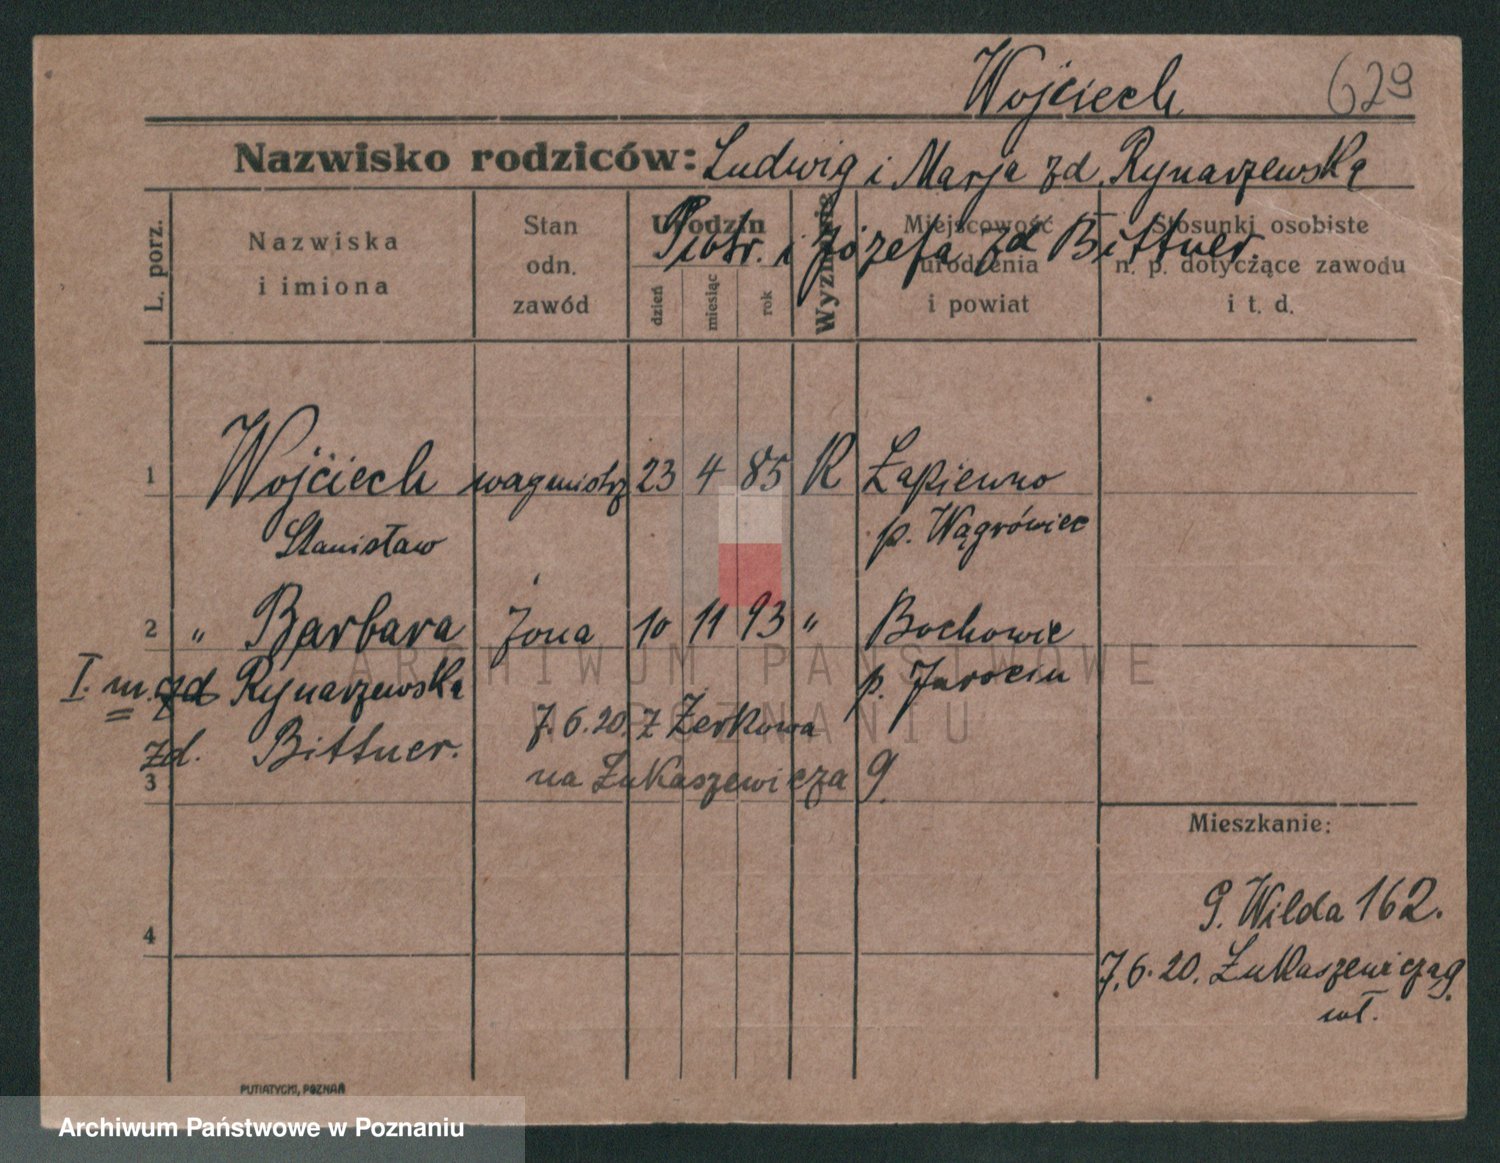 Wojciech 629
Nazwisko rodziców: Ludwig i Marja zd. Rynarzewska
Piotr. i Józefa zd Bittner.
L. porz.
Nazwiska
i imiona
Stan
odn.
zawód
Urodzin
dzień
miesiąc
rok
Wyznanie
Miejscowość
urodzenia
i powiat
Stosunki osobiste
n. p. dotyczące zawodu
i t. d.
1 Wojciech wagmistrz 23 4 85 R Łakiewno
Stanisław p. Wągrówiec
2 " Barbara żona 10 11 93 " Bochowie
I. m. zd Rynarzewska p. Jarocin
7.6.20. z Żerkowa
zd. Bittner.
3 na Łukaszewicza 9
Mieszkanie:
G. Wilda 162.
4
7.6.20. Łukaszewicza 9.
wł.
PUTIATYCKI, POZNAŃ
ARCHIWUM PAŃSTWOWE
W POZNANIU
Archiwum Państwowe w Poznaniu